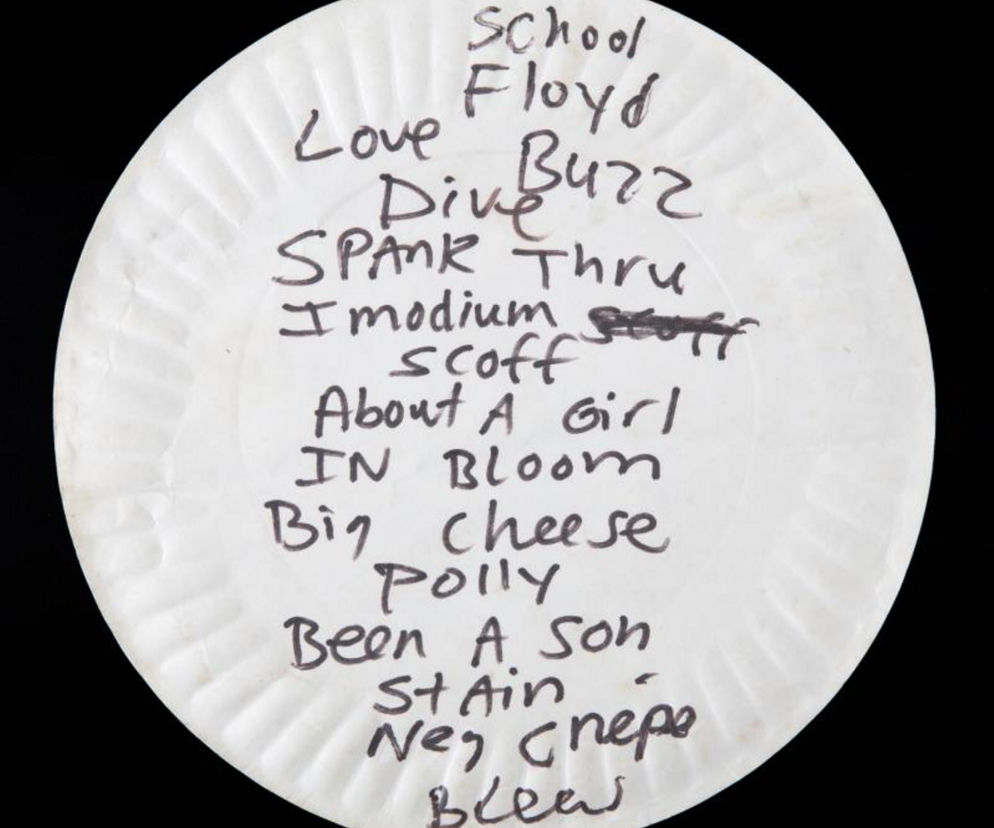 School
Floyd
Love Buzz
Dive
SPAnK Thru
Imodium scoff
scoff
About A Girl
IN Bloom
Big Cheese
Polly
Been A Son
StAin
Neg Crepe
Blew